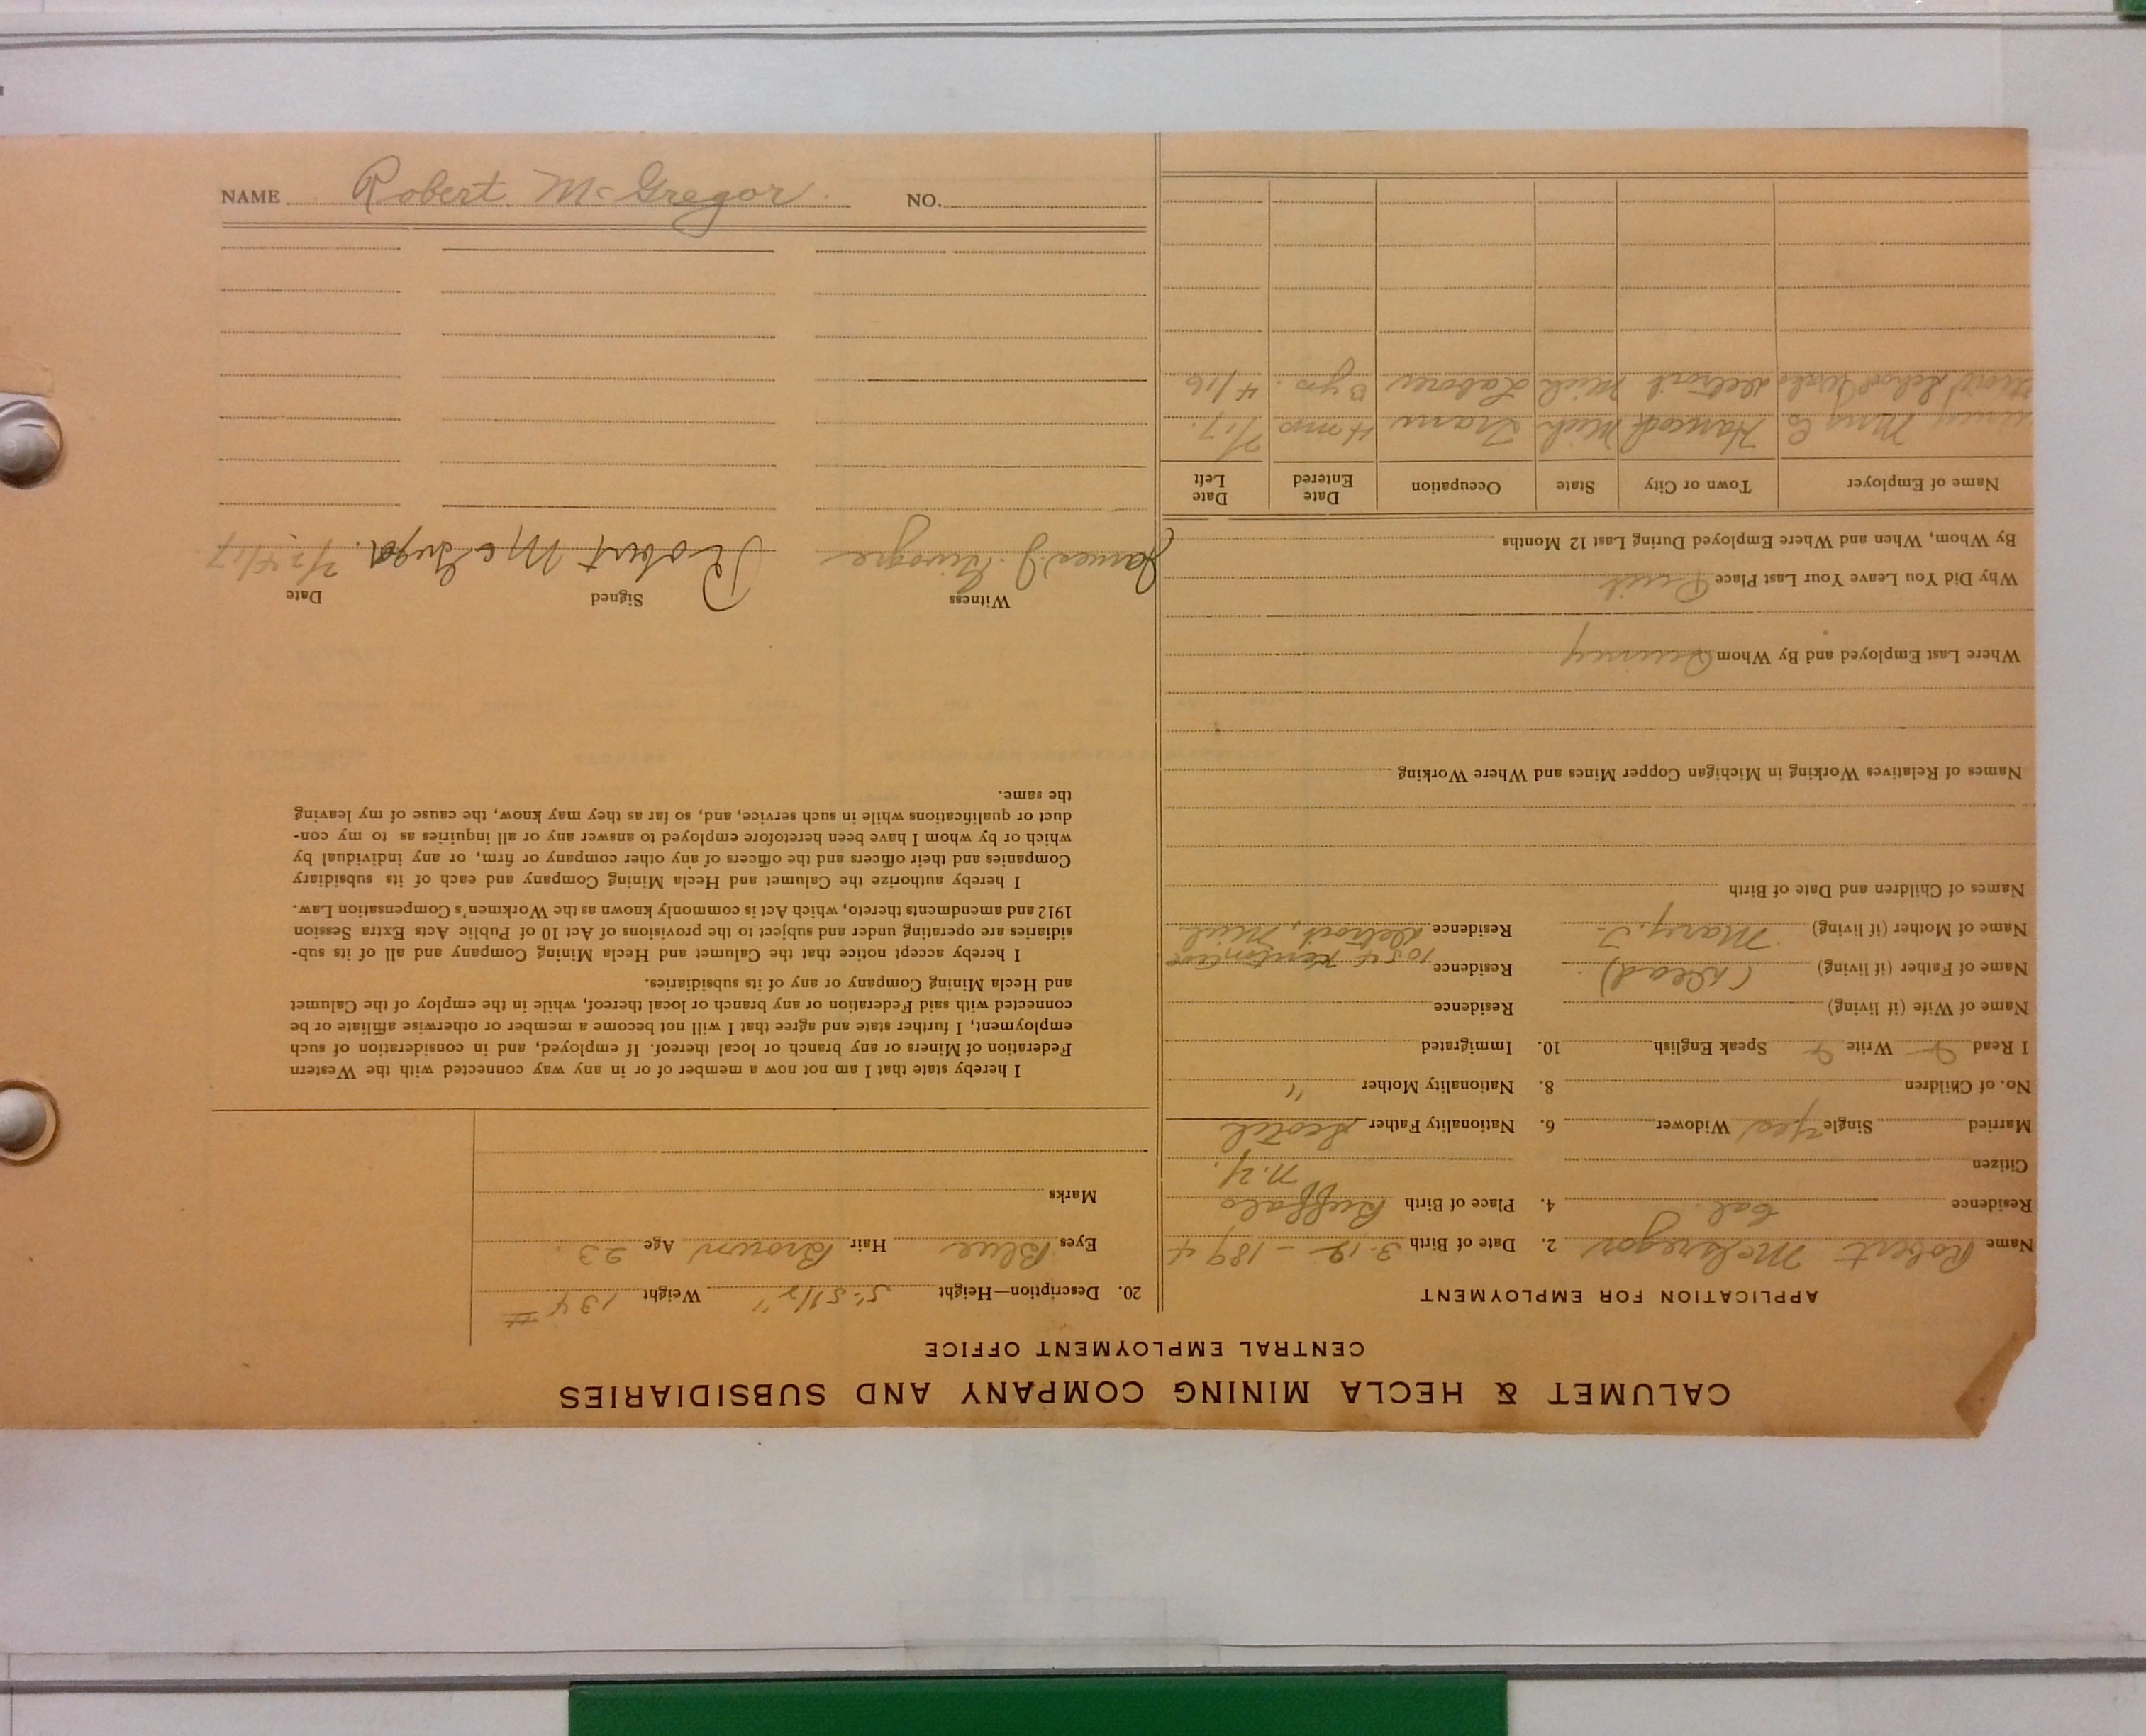 CALUMET & HECLA MINING COMPANY AND SUBSIDIARIES
CENTRAL EMPLOYMENT OFFICE
APPLICATION FOR EMPLOYMENT
Name Robert McGregor 2. Date of Birth 3-12-1894
Residence Cal. 4. Place of Birth Buffalo
Citizen N.Y.
Married Single Yes Widower 6. Nationality Father Scotch
No. of Children 8. Nationality Mother "
I Read Write Speak English 10. Immigrated
Name of Wife (if living) Residence
Name of Father (if living) (Dead) Residence 1054
Name of Mother (if living) Mary. J. Residence Detroit, Mich
Names of Children and Date of Birth
Names of Relatives Working in Michigan Copper Mines and Where Working
Where Last Employed and By Whom Quincy
Why Did You Leave Your Last Place Quit
By Whom, When and Where Employed During Last 12 Months
Name of Employer Town or City State Occupation Date Entered Date Left
Mng Co Hancock Mich Tram 4 mos 7/17.
Detroit Mich Laborer 3 yrs. 4/16
20. Description—Height 5'-5 1/2" Weight 134 #
Eyes Blue Hair Brown Age 23
Marks
I hereby state that I am not now a member of or in any way connected with the Western
Federation of Miners or any branch or local thereof. If employed, and in consideration of such
employment, I further state and agree that I will not become a member or otherwise affiliate or be
connected with said Federation or any branch or local thereof, while in the employ of the Calumet
and Hecla Mining Company or any of its subsidiaries.
I hereby accept notice that the Calumet and Hecla Mining Company and all of its sub-
sidiaries are operating under and subject to the provisions of Act 10 of Public Acts Extra Session
1912 and amendments thereto, which Act is commonly known as the Workmen's Compensation Law.
I hereby authorize the Calumet and Hecla Mining Company and each of its subsidiary
Companies and their officers and the officers of any other company or firm, or any individual by
which or by whom I have been heretofore employed to answer any or all inquiries as to my con-
duct or qualifications while in such service, and, so far as they may know, the cause of my leaving
the same.
Witness Signed Date
James J. Robert McGregor. 7/24/17
NAME Robert McGregor. NO.